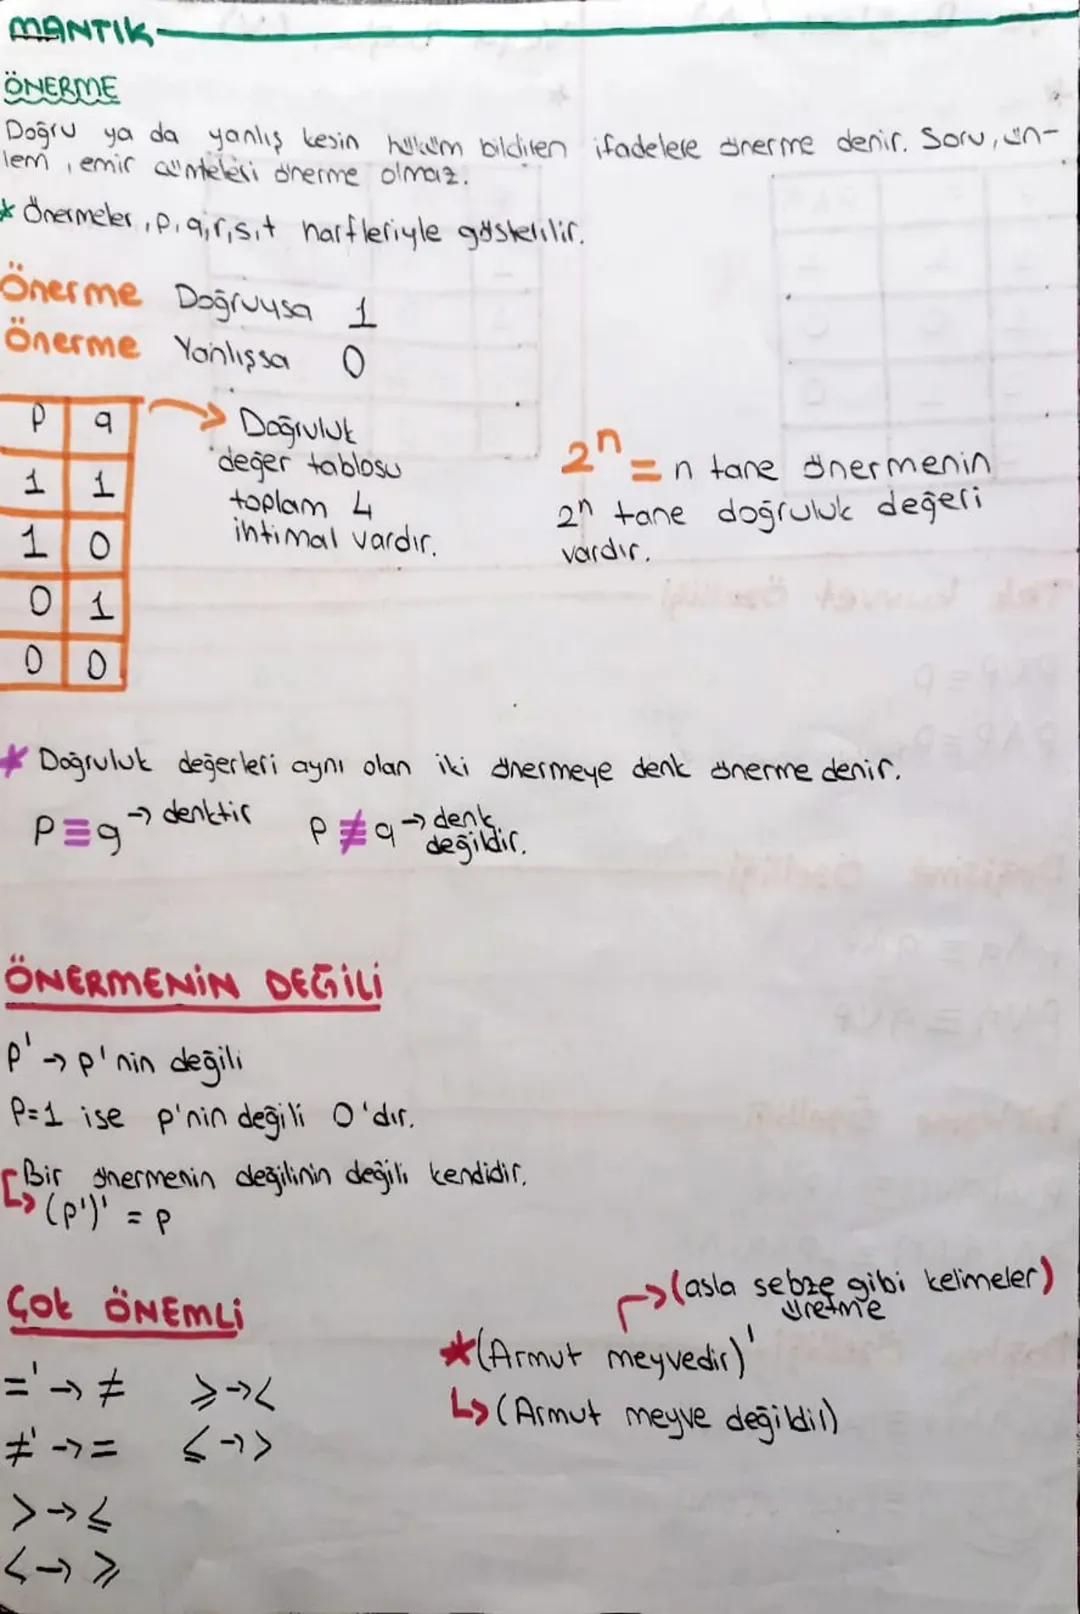 MANTIK
ÖNERME
Doğru ya da yanlış kesin hüküm bildiren ifadelere önerme denir. Soru, ün-
lem, emir cümleleri önerme olmaz.
* Önermeler, p, q, r, s, t harfleriyle gösterilir.
Önerme Doğruysa 1
Önerme Yanlışsa 0
p q
1 1
1 0
0 1
0 0
→ Doğruluk
değer tablosu
toplam 4
ihtimal vardır.
2ⁿ = n tane önermenin
2ⁿ tane doğruluk değeri
vardır.
* Doğruluk değerleri aynı olan iki önermeye denk önerme denir.
p ≡ q → denktir p ≢ q → denk
değildir.
ÖNERMENİN DEĞİLİ
p' → p'nin değili
P=1 ise p'nin değili 0'dır.
Bir önermenin değilinin değili kendidir.
↳ (p')' = p
ÇOK ÖNEMLİ
=' → ≠ ⩾ → <
≠' → = ⩽ → >
> → ⩽
< → ⩾
→ (asla sebze gibi kelimeler)
üretme
* (Armut meyvedir)'
↳ (Armut meyve değildir)